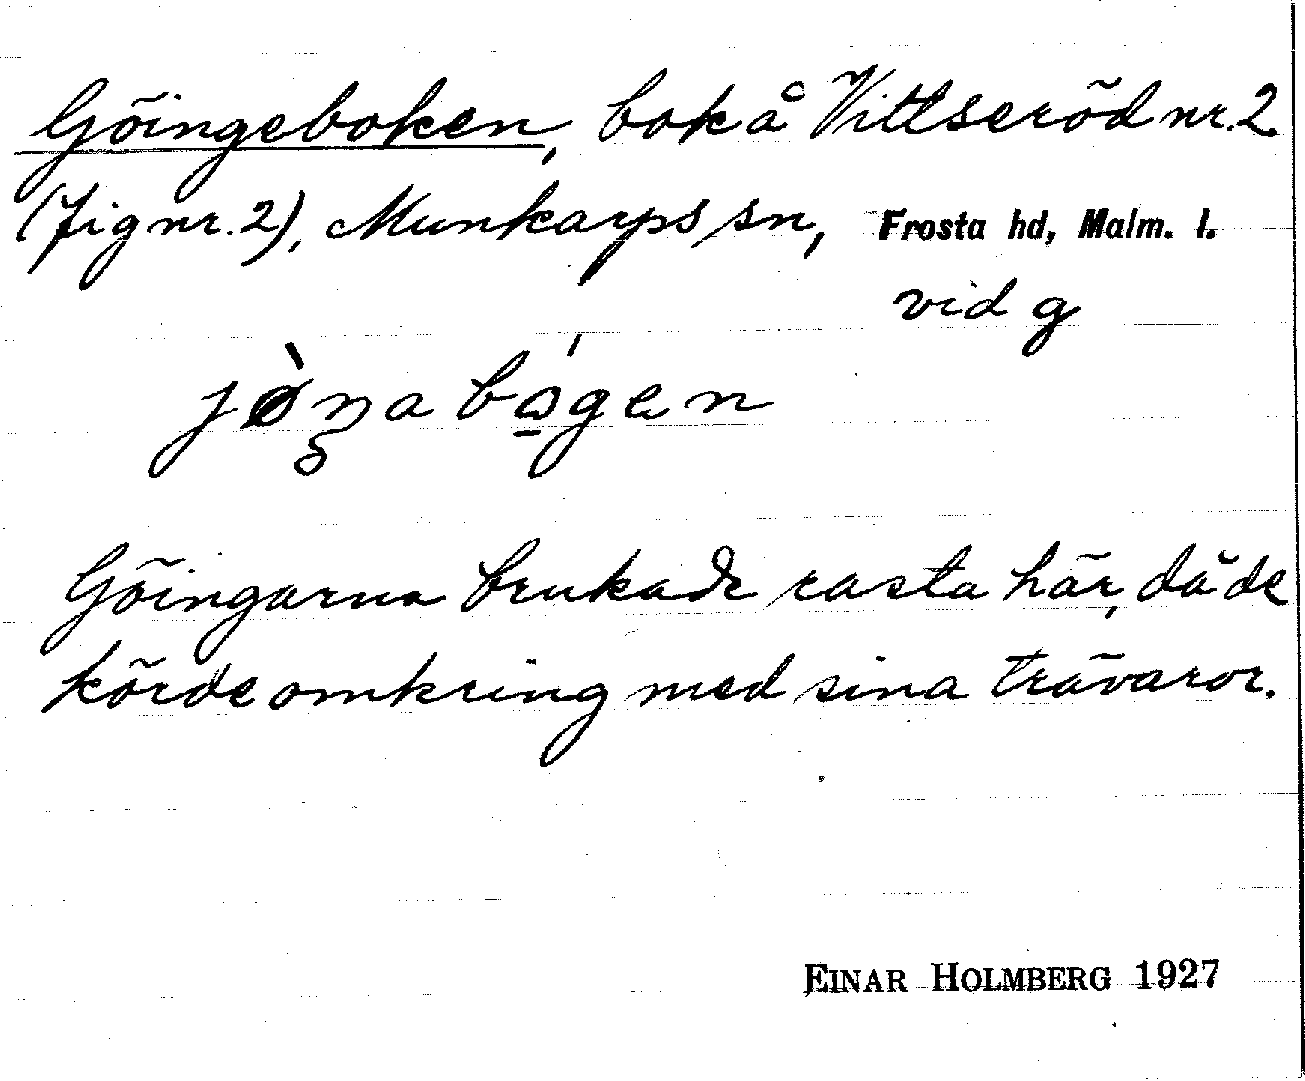 Göingeboken, bok å Vittseröd nr. 2
(fig nr. 2), Munkarps sn, Frosta hd, Malm. l.
vid g
jø̀ŋa bó̱gen
Göingarna brukade rasta här, då de
körde omkring med sina trävaror.
EINAR HOLMBERG 1927